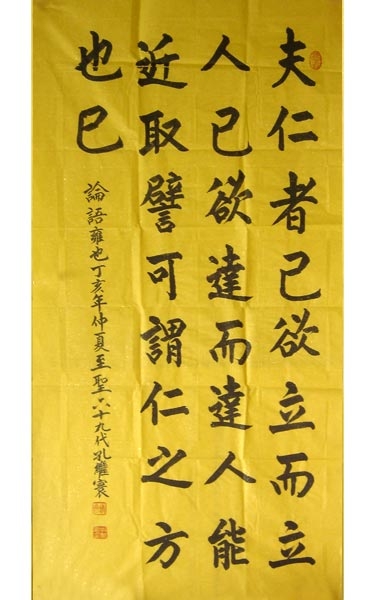 夫仁者己欲立而立
人己欲達而達人能
近取譬可謂仁之方
也已
論語雍也丁亥年仲夏至聖六十九代孔繼寰